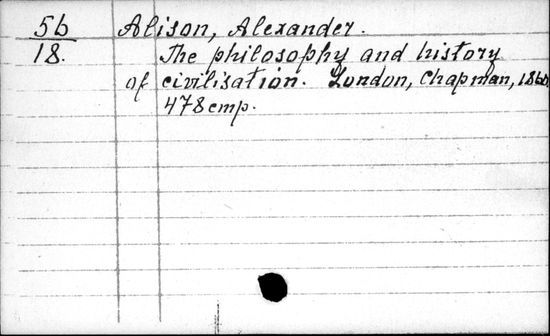 56 Alison, Alexander.
18. The philosophy and history
of civilisation. London, Chapman, 1860.
478 cmp.